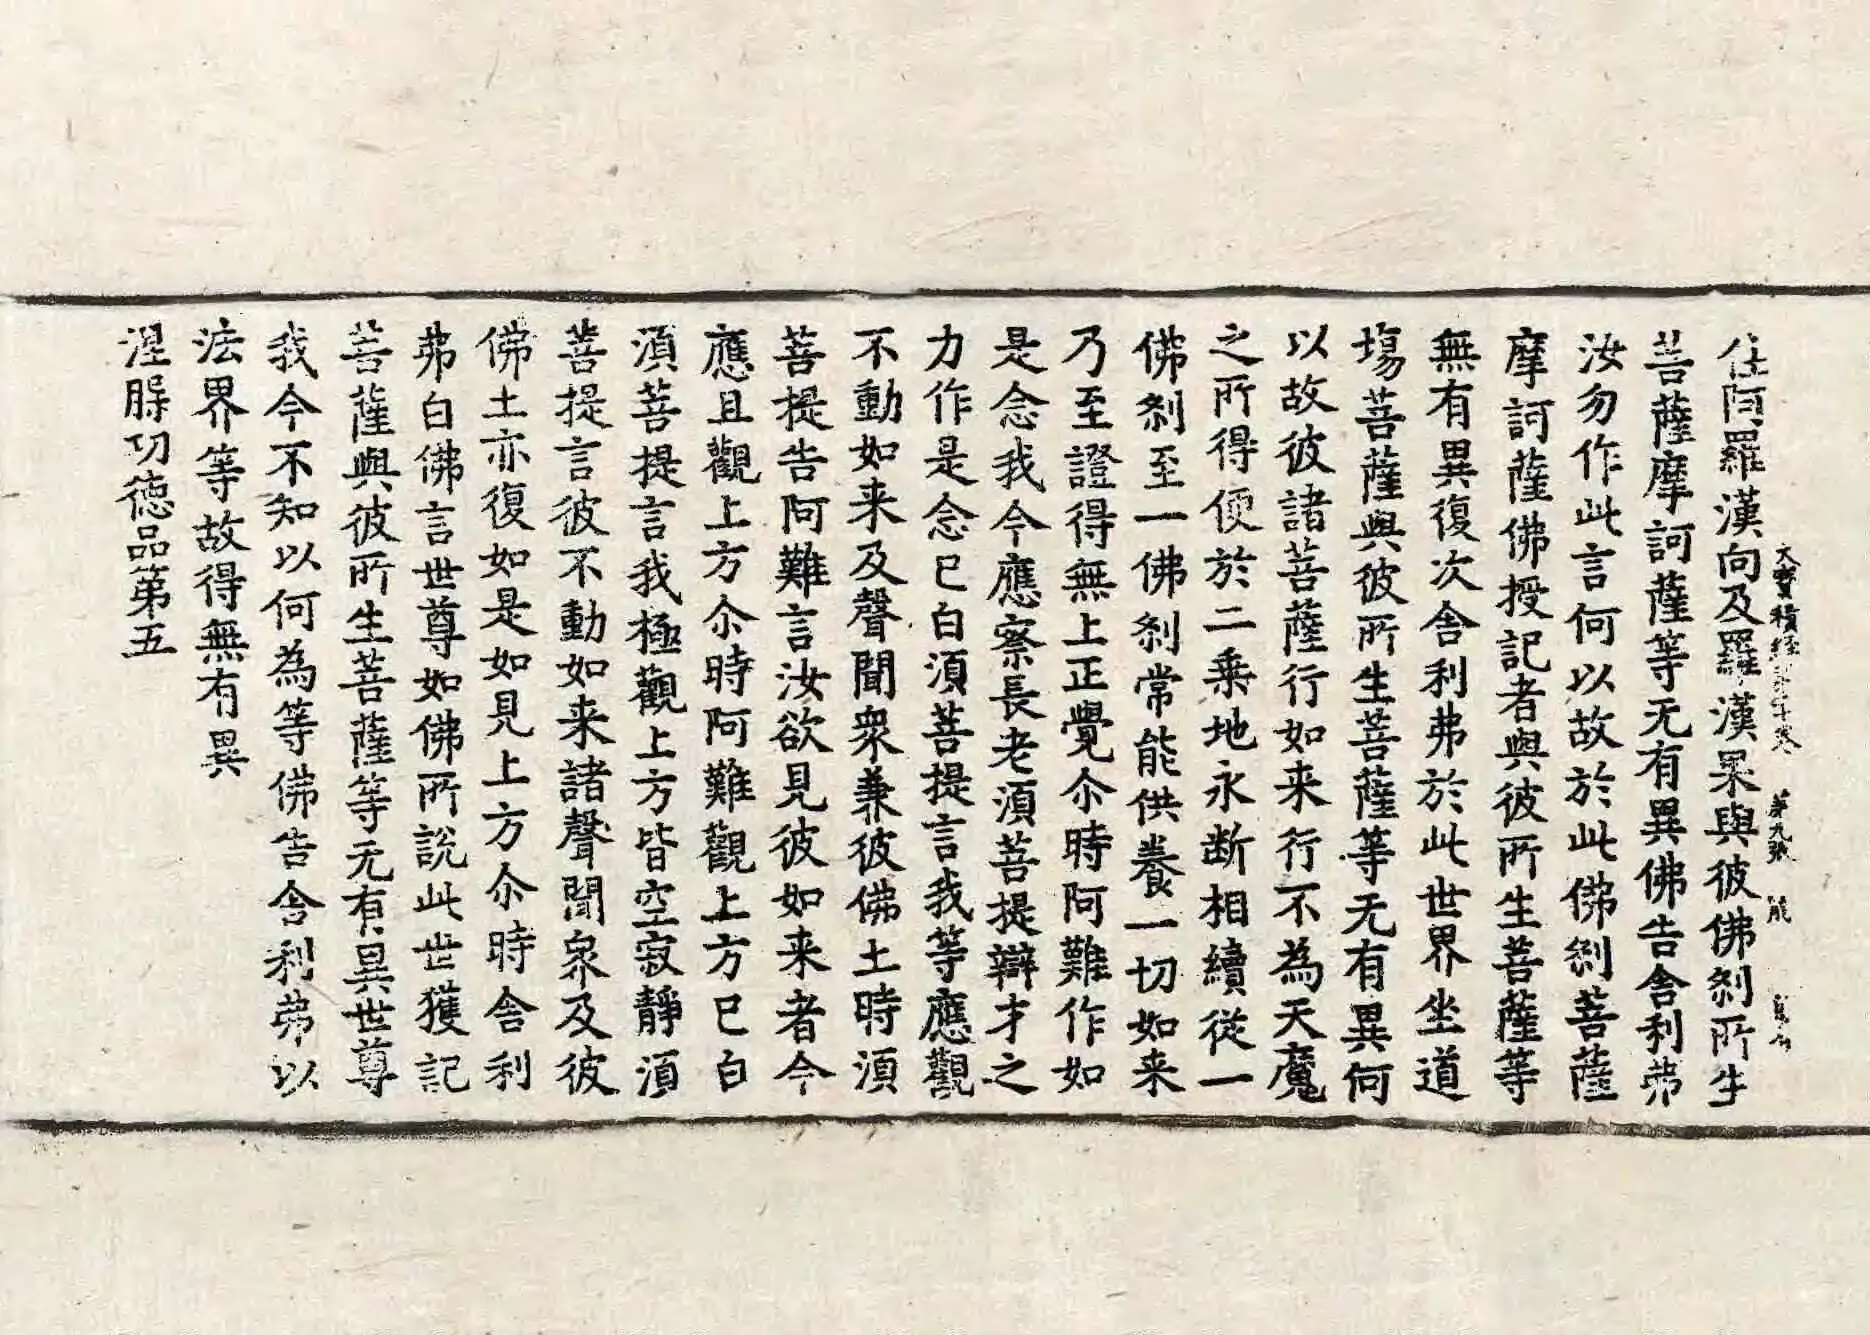 大寶積經第二十卷 第九張 能
住阿羅漢向及羅漢果與彼佛刹所生
菩薩摩訶薩等无有異佛告舍利弗
汝勿作此言何以故於此佛刹菩薩
摩訶薩佛授記者與彼所生菩薩等
無有異復次舍利弗於此世界坐道
場菩薩與彼所生菩薩等无有異何
以故彼諸菩薩行如来行不為天魔
之所得便於二乗地永断相續從一
佛刹至一佛刹常能供養一切如来
乃至證得無上正覺尒時阿難作如
是念我今應察長老湏菩提辯才之
力作是念已白湏菩提言我等應觀
不動如来及聲聞衆兼彼佛土時湏
菩提告阿難言汝欲見彼如来者今
應且觀上方尒時阿難觀上方已白
湏菩提言我極觀上方皆空寂靜湏
菩提言彼不動如来諸聲聞衆及彼
佛土亦復如是如見上方尒時舍利
弗白佛言世尊如佛所說此世獲記
菩薩與彼所生菩薩等无有異世尊
我今不知以何為等佛告舍利弗以
法界等故得無有異
涅槃功德品第五